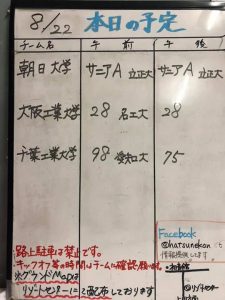 8/22 本日の予定
チーム名 午前 午後
朝日大学 サニアA 立正大 サニアA 立正大
大阪工業大学 28 名工大 28
千葉工業大学 98 愛知大 75
路上駐車は禁止です。
キックオフ等の時間はチームに確認願います。
※グランドMapは
リゾートセンターにて配布しております
Facebook
@hatsunekan
情報提供してます